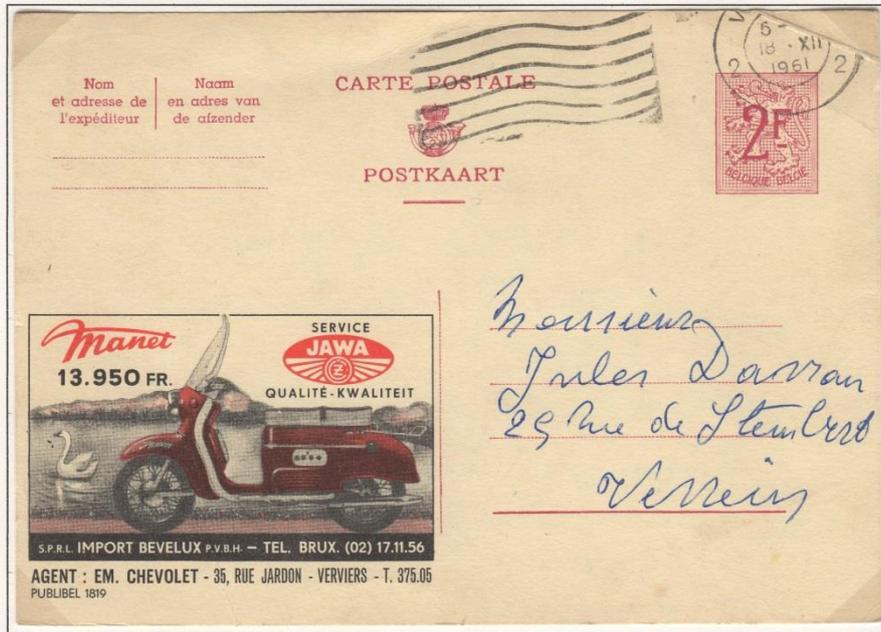 Nom
et adresse de
l'expéditeur
Naam
en adres van
de afzender
CARTE POSTALE
POSTKAART
6-
18 · XII
1961
2 2
2F
BELGIQUE BELGIË
Manet
13.950 FR.
SERVICE
JAWA
CZ
QUALITÉ-KWALITEIT
S.P.R.L. IMPORT BEVELUX P.V.B.H. — TEL. BRUX. (02) 17.11.56
AGENT : EM. CHEVOLET - 35, RUE JARDON - VERVIERS - T. 375.05
PUBLIBEL 1819
Monsieur
Jules
Rue de Stembert
Verviers